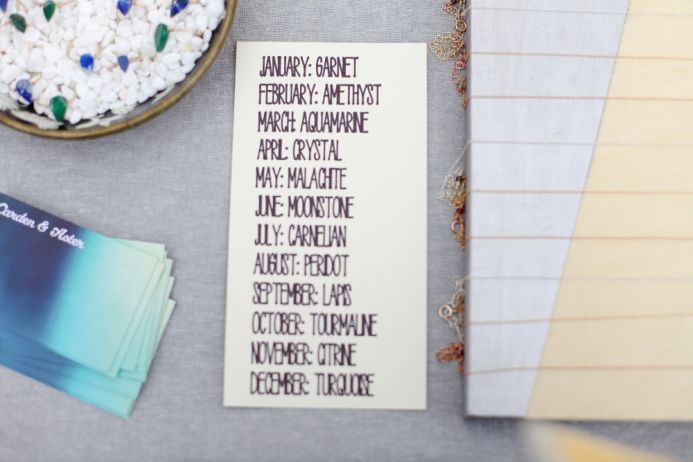 JANUARY: GARNET
FEBRUARY: AMETHYST
MARCH: AQUAMARINE
APRIL: CRYSTAL
MAY: MALACHITE
JUNE: MOONSTONE
JULY: CARNELIAN
AUGUST: PERIDOT
SEPTEMBER: LAPIS
OCTOBER: TOURMALINE
NOVEMBER: CITRINE
DECEMBER: TURQUOISE
Carden & Aster